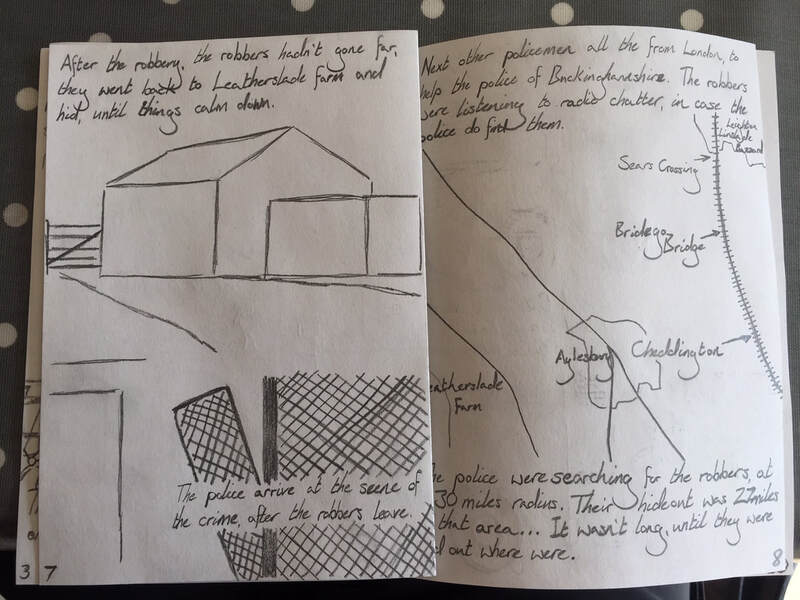 After the robbery, the robbers hadn't gone far,
they went back to Leatherslade farm and
hid, until things calm down.
The police arrive at the scene of
the crime, after the robbers leave.
3 7
Next other policemen all the from London, to
help the police of Buckinghamshire. The robbers
were listening to radio chatter, in case the
police do find them.
Leighton
Linslade
Buzzard
Sears Crossing
Bridego
Bridge
Cheddington
Aylesbury
eatherslade
Farm
he police were searching for the robbers, at
30 miles radius. Their hideout was 27miles
that area... It wasn't long, until they were
d out where were.
8